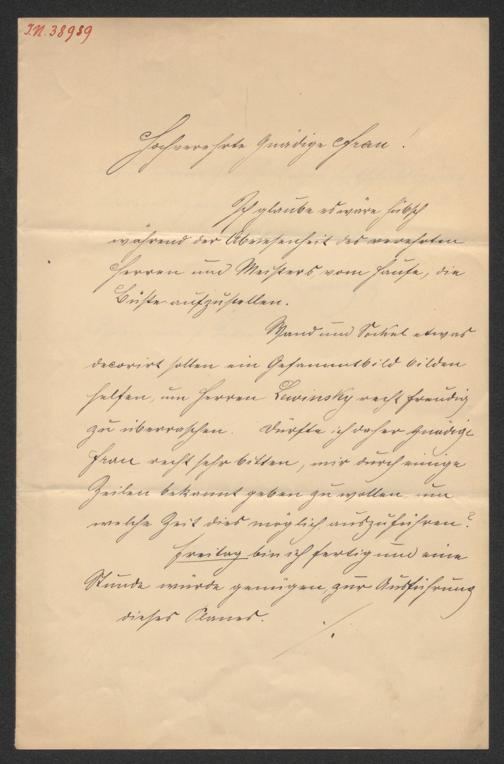 I.N. 38989
Hochverehrte Gnädige Frau!
Ich glaube es wäre hübsch
während der Abwesenheit des verehrten
Herren und Meisters vom Hause, die
Büste aufzustellen.
Wand und Sockel etwas
decorirt sollen ein Gesammtbild bilden
helfen, um Herren Lewinsky recht freudig
zu überraschen. Dürfte ich daher gnädige
Frau recht sehr bitten, mir durch einige
Zeilen bekannt geben zu wollen um
welche Zeit dies möglich auszuführen?
Freitag bin ich fertig und eine
Stunde würde genügen, zur Ausführung
dieses Planes.
./.